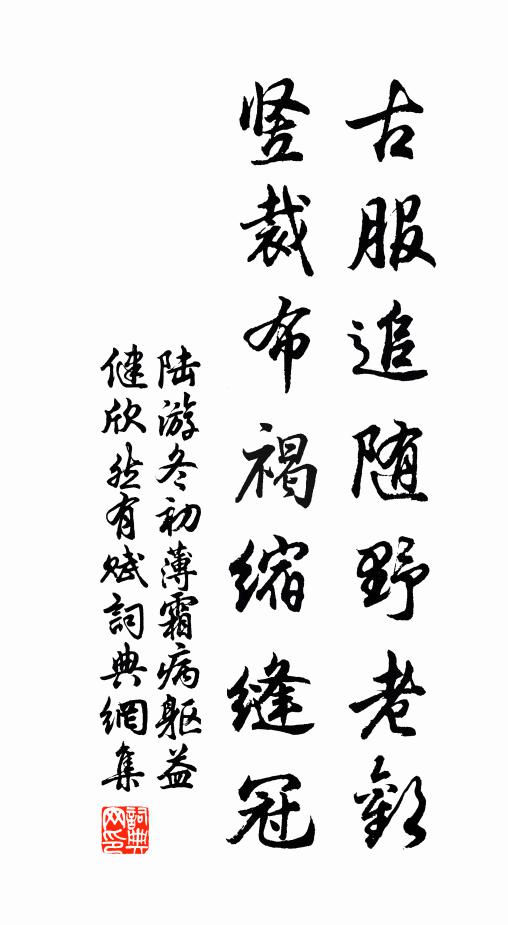 古服追随野老歡
竖裁布褐縮縫冠
陆游冬初薄霜病躯益
健欣然有赋詞典網集
詞典
网印